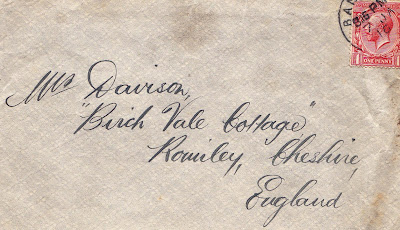 Mrs Davison,
"Birch Vale Cottage,"
Romiley, Cheshire,
England
ONE PENNY